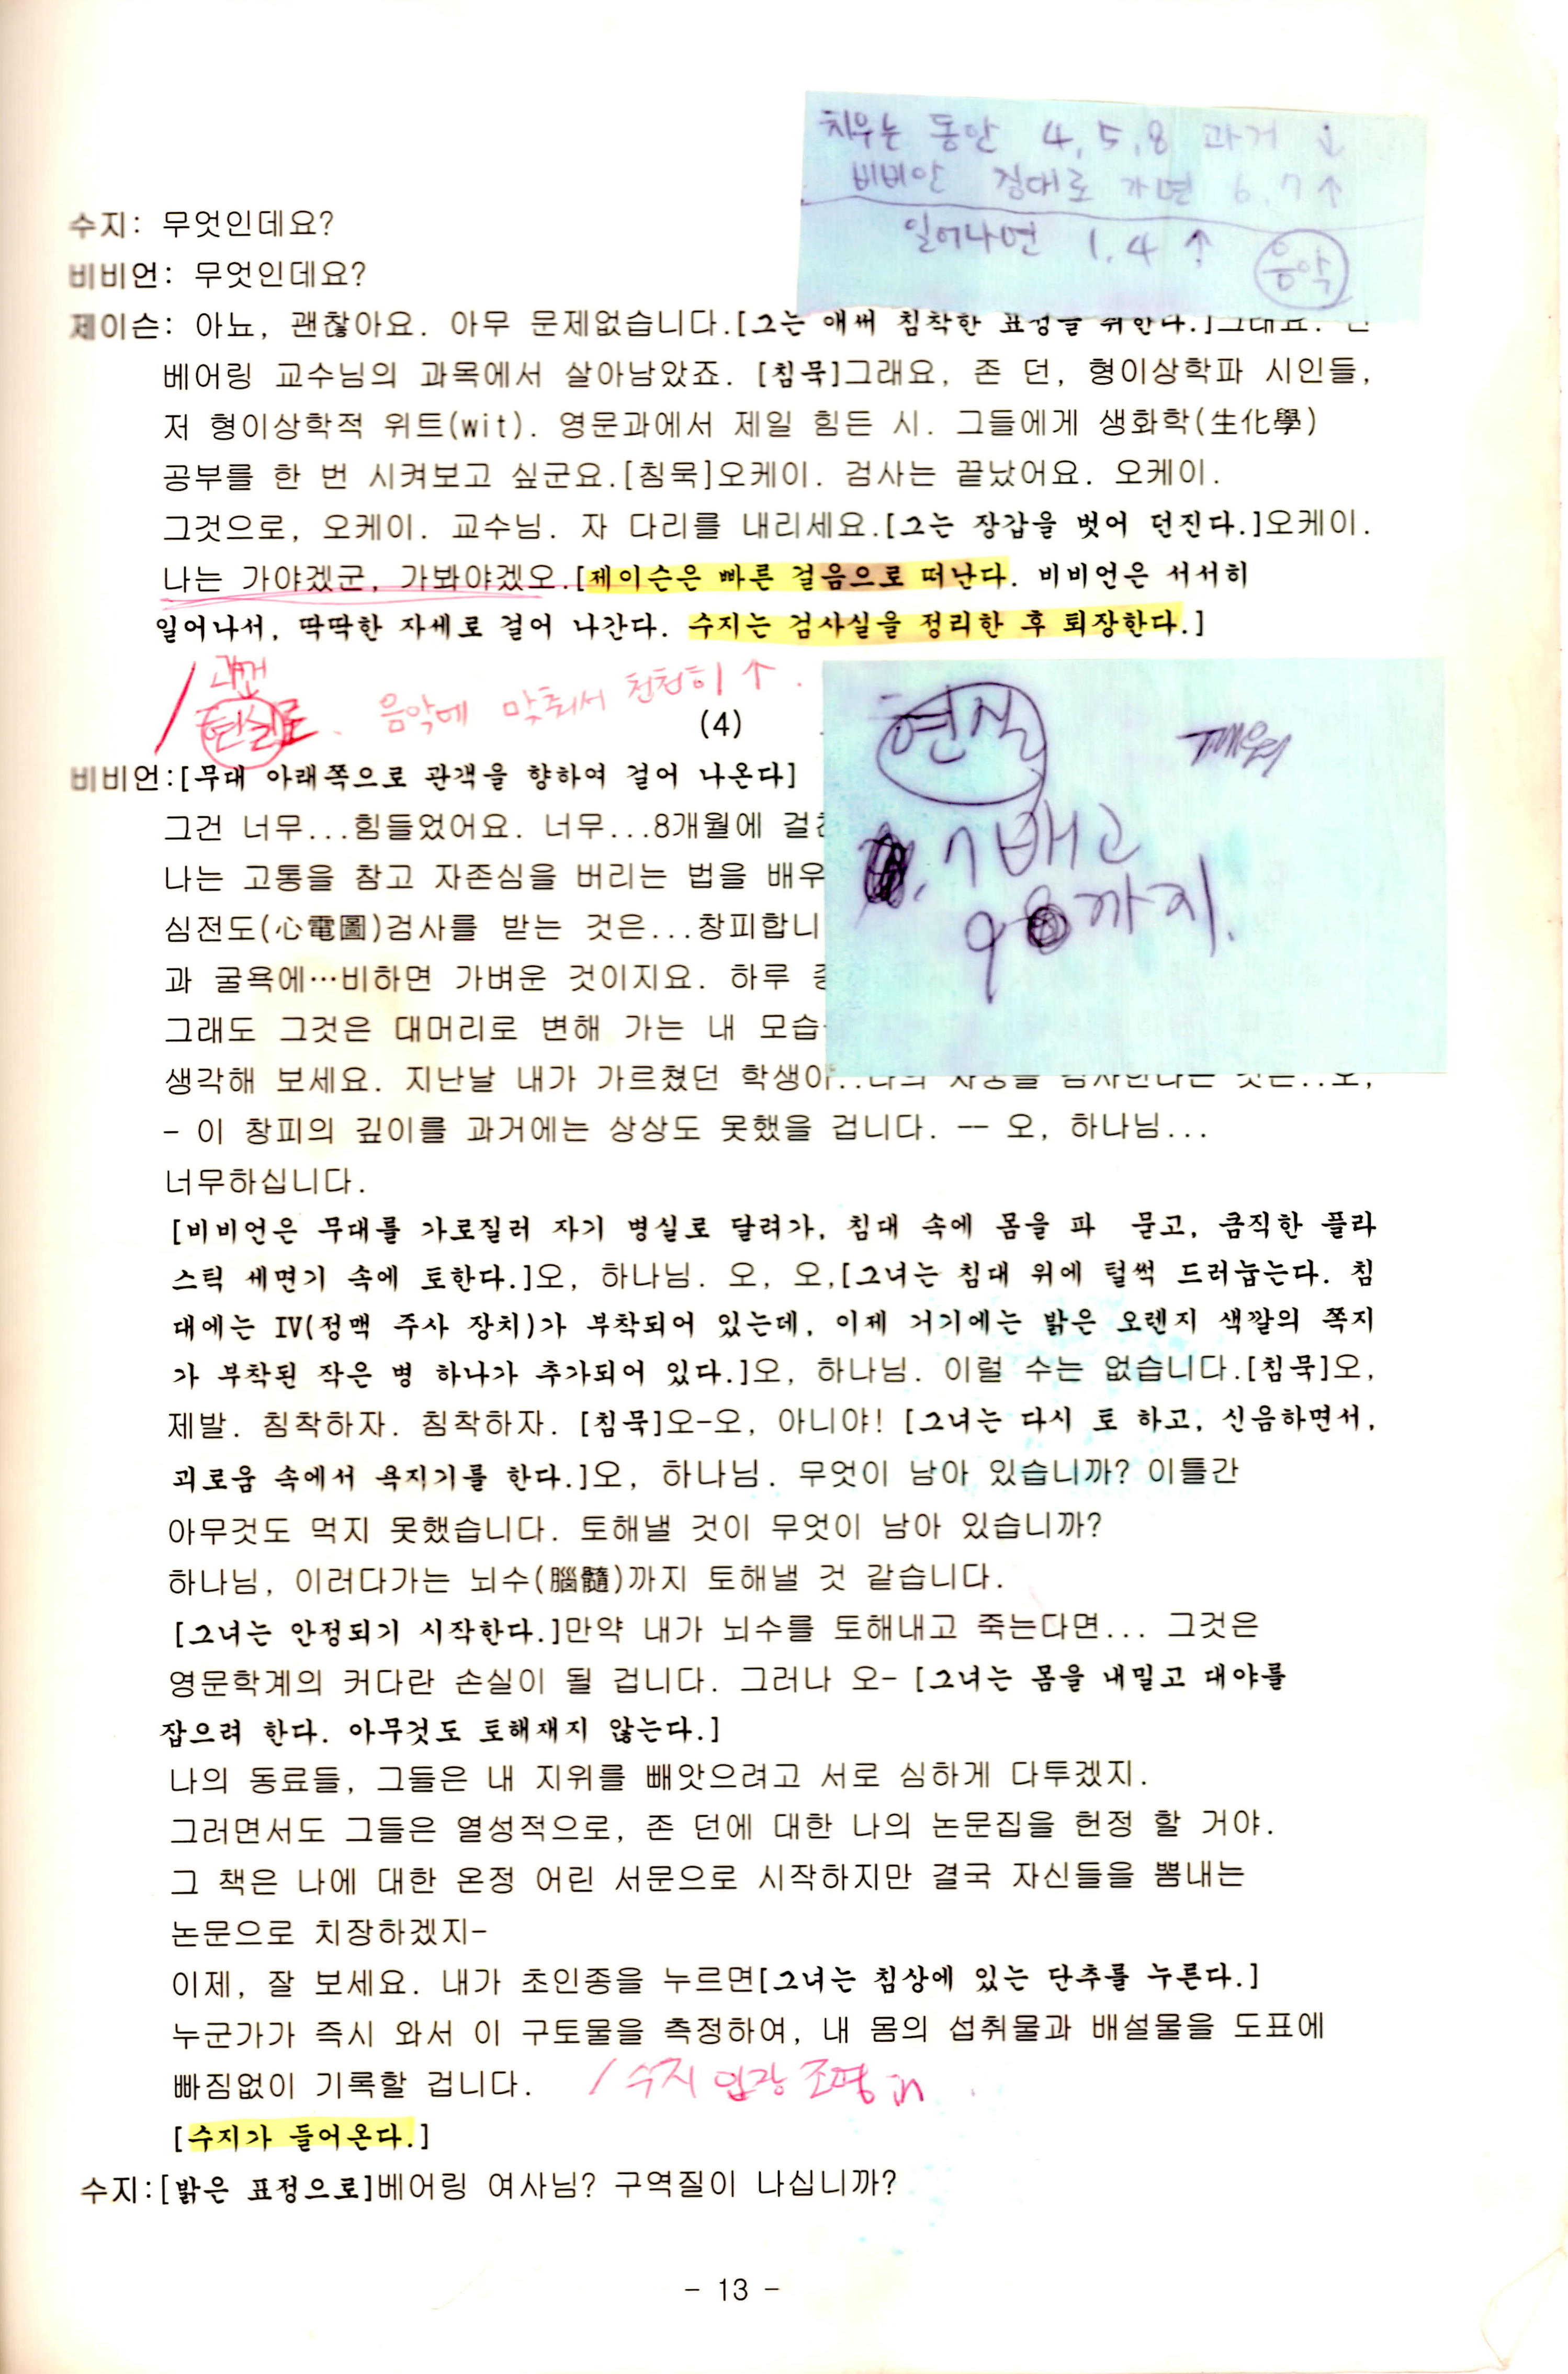 치우는 동안 4, 5, 8 과거 ↓
비비안 침대로 가면 6, 7 ↑
일어나면 1, 4 ↑ 음악
수지: 무엇인데요?
비비언: 무엇인데요?
제이슨: 아뇨, 괜찮아요. 아무 문제없습니다.[그는 애써 침착한 표정을 취한다.]그래요.
베어링 교수님의 과목에서 살아남았죠. [침묵]그래요, 존 던, 형이상학파 시인들,
저 형이상학적 위트(wit). 영문과에서 제일 힘든 시. 그들에게 생화학(生化學)
공부를 한 번 시켜보고 싶군요.[침묵]오케이. 검사는 끝났어요. 오케이.
그것으로, 오케이. 교수님. 자 다리를 내리세요.[그는 장갑을 벗어 던진다.]오케이.
나는 가야겠군, 가봐야겠오.[제이슨은 빠른 걸음으로 떠난다. 비비언은 서서히
일어나서, 딱딱한 자세로 걸어 나간다. 수지는 검사실을 정리한 후 퇴장한다.]
/ 과거
현실로. 음악에 맞춰서 천천히 ↑.
(4)
현실
7 빼고
9 까지.
비비언:[무대 아래쪽으로 관객을 향하여 걸어 나온다]
그건 너무...힘들었어요. 너무...8개월에
나는 고통을 참고 자존심을 버리는 법을 배우
심전도(心電圖)검사를 받는 것은...창피합니
과 굴욕에…비하면 가벼운 것이지요. 하루
그래도 그것은 대머리로 변해 가는 내 모습
생각해 보세요. 지난날 내가 가르쳤던 학생이..나의 자궁을 검사한다는 것은..오,
- 이 창피의 깊이를 과거에는 상상도 못했을 겁니다. -- 오, 하나님...
너무하십니다.
[비비언은 무대를 가로질러 자기 병실로 달려가, 침대 속에 몸을 파 묻고, 큼직한 플라
스틱 세면기 속에 토한다.]오, 하나님. 오, 오,[그녀는 침대 위에 털썩 드러눕는다. 침
대에는 IV(정맥 주사 장치)가 부착되어 있는데, 이제 거기에는 밝은 오렌지 색깔의 쪽지
가 부착된 작은 병 하나가 추가되어 있다.]오, 하나님. 이럴 수는 없습니다.[침묵]오,
제발. 침착하자. 침착하자. [침묵]오-오, 아니야! [그녀는 다시 토 하고, 신음하면서,
괴로움 속에서 욕지기를 한다.]오, 하나님. 무엇이 남아 있습니까? 이틀간
아무것도 먹지 못했습니다. 토해낼 것이 무엇이 남아 있습니까?
하나님, 이러다가는 뇌수(腦髓)까지 토해낼 것 같습니다.
[그녀는 안정되기 시작한다.]만약 내가 뇌수를 토해내고 죽는다면... 그것은
영문학계의 커다란 손실이 될 겁니다. 그러나 오- [그녀는 몸을 내밀고 대야를
잡으려 한다. 아무것도 토해재지 않는다.]
나의 동료들, 그들은 내 지위를 빼앗으려고 서로 심하게 다투겠지.
그러면서도 그들은 열성적으로, 존 던에 대한 나의 논문집을 헌정 할 거야.
그 책은 나에 대한 온정 어린 서문으로 시작하지만 결국 자신들을 뽐내는
논문으로 치장하겠지-
이제, 잘 보세요. 내가 초인종을 누르면[그녀는 침상에 있는 단추를 누른다.]
누군가가 즉시 와서 이 구토물을 측정하여, 내 몸의 섭취물과 배설물을 도표에
빠짐없이 기록할 겁니다. / 수지 입장 조명 in.
[수지가 들어온다.]
수지:[밝은 표정으로]베어링 여사님? 구역질이 나십니까?
- 13 -